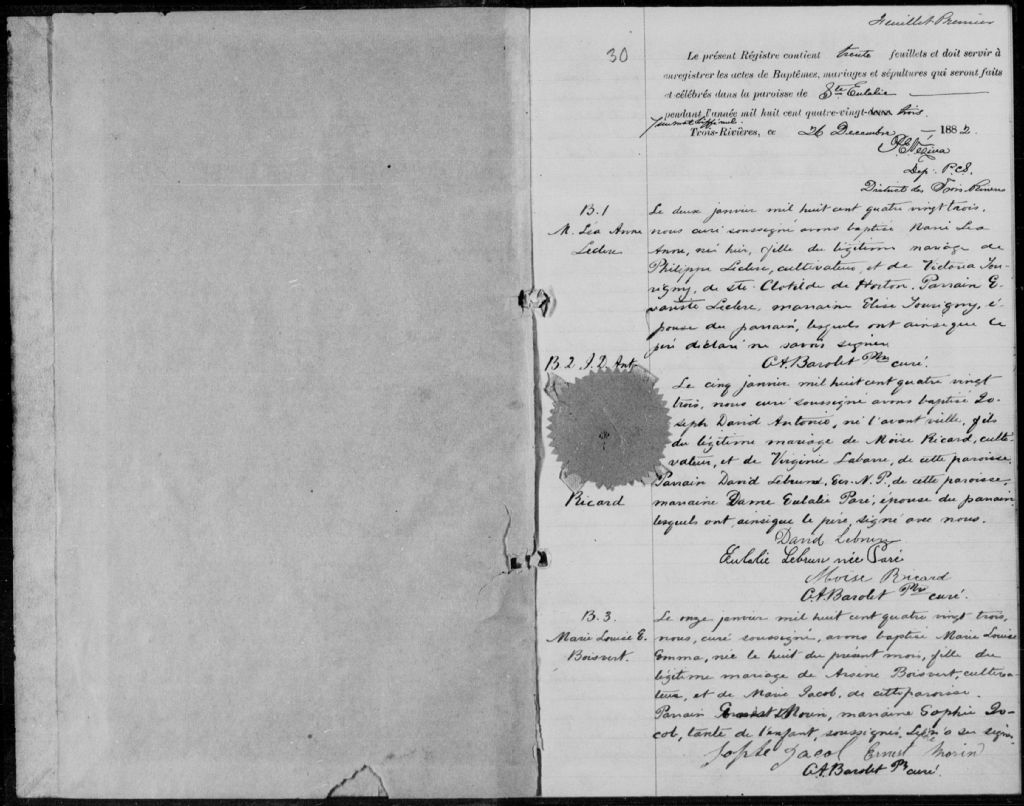 Feuillet Premier
30
Le présent Régistre contient trente feuillets et doit servir à
enregistrer les actes de Baptêmes, mariages et sépultures qui seront faits
et célébrés dans la paroisse de Ste. Eulalie
pendant l'année mil huit cent quatre-vingt-deux trois.
Trois-Rivières, ce 26 Decembre 1882
Dep. P.C.S.
District des Trois Rivières
B.1
M. Léa Anna
Leclerc
Le deux janvier mil huit cent quatre vingt trois,
nous curé soussigné avons baptisé Marie Léa
Anna, née hier, fille du légitime mariage de
Philippe Leclerc, cultivateur, et de Victoria Tou-
rigny, de Ste Clotilde de Horton. Parrain E-
variste Leclerc, marraine Elise Tourigny, é-
pouse du parrain, lesquels ont ainsi que le
père déclaré ne savoir signer
C.A. Barolet Ptre curé.
B 2 J. D. Ant.
Ricard
Le cinq janvier mil huit cent quatre vingt
trois, nous curé soussigné avons baptisé Jo-
seph David Antonio, né l'avant veille, fils
du légitime mariage de Moïse Ricard, culti-
vateur, et de Virginie Labarre, de cette paroisse.
Parrain David Lebrun, Ecr. N.P. de cette paroisse,
marraine Dame Eulalie Paré, épouse du parrain
lesquels ont, ainsi que le père, signé avec nous.
David Lebrun
Eulalie Lebrun née Paré
Moïse Ricard
C.A. Barolet Ptre curé.
B.3.
Marie Louise E.
Boisvert.
Le onze janvier mil huit cent quatre vingt trois,
nous, curé soussigné, avons baptisé Marie Louise
Emma, née le huit du présent mois, fille du
légitime mariage de Arsène Boisvert, cultiva-
teur, et de Marie Jacob, de cette paroisse.
Parrain Ernest Morin, marraine Sophie Ja-
cob, tante de l'enfant, soussignés.
Sophie Jacob Ernest Morin
C.A. Barolet Ptr curé.